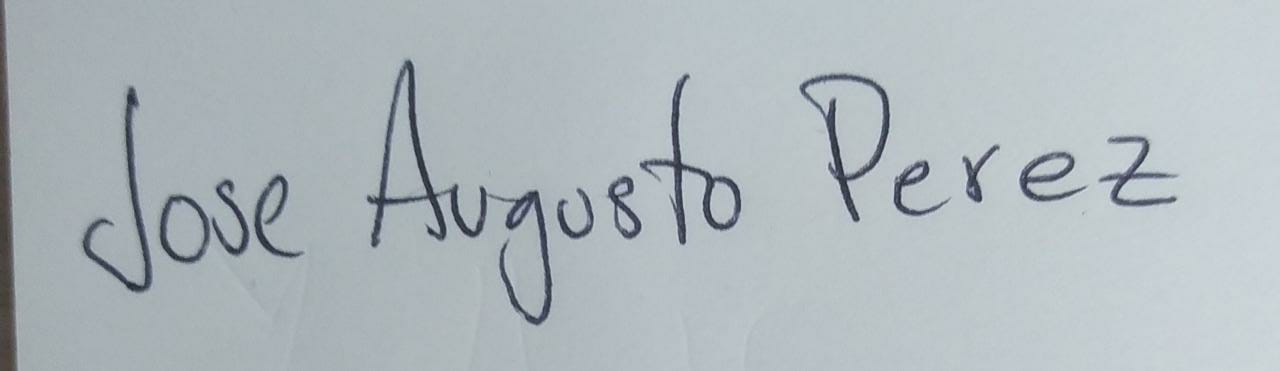 Jose Augusto Perez